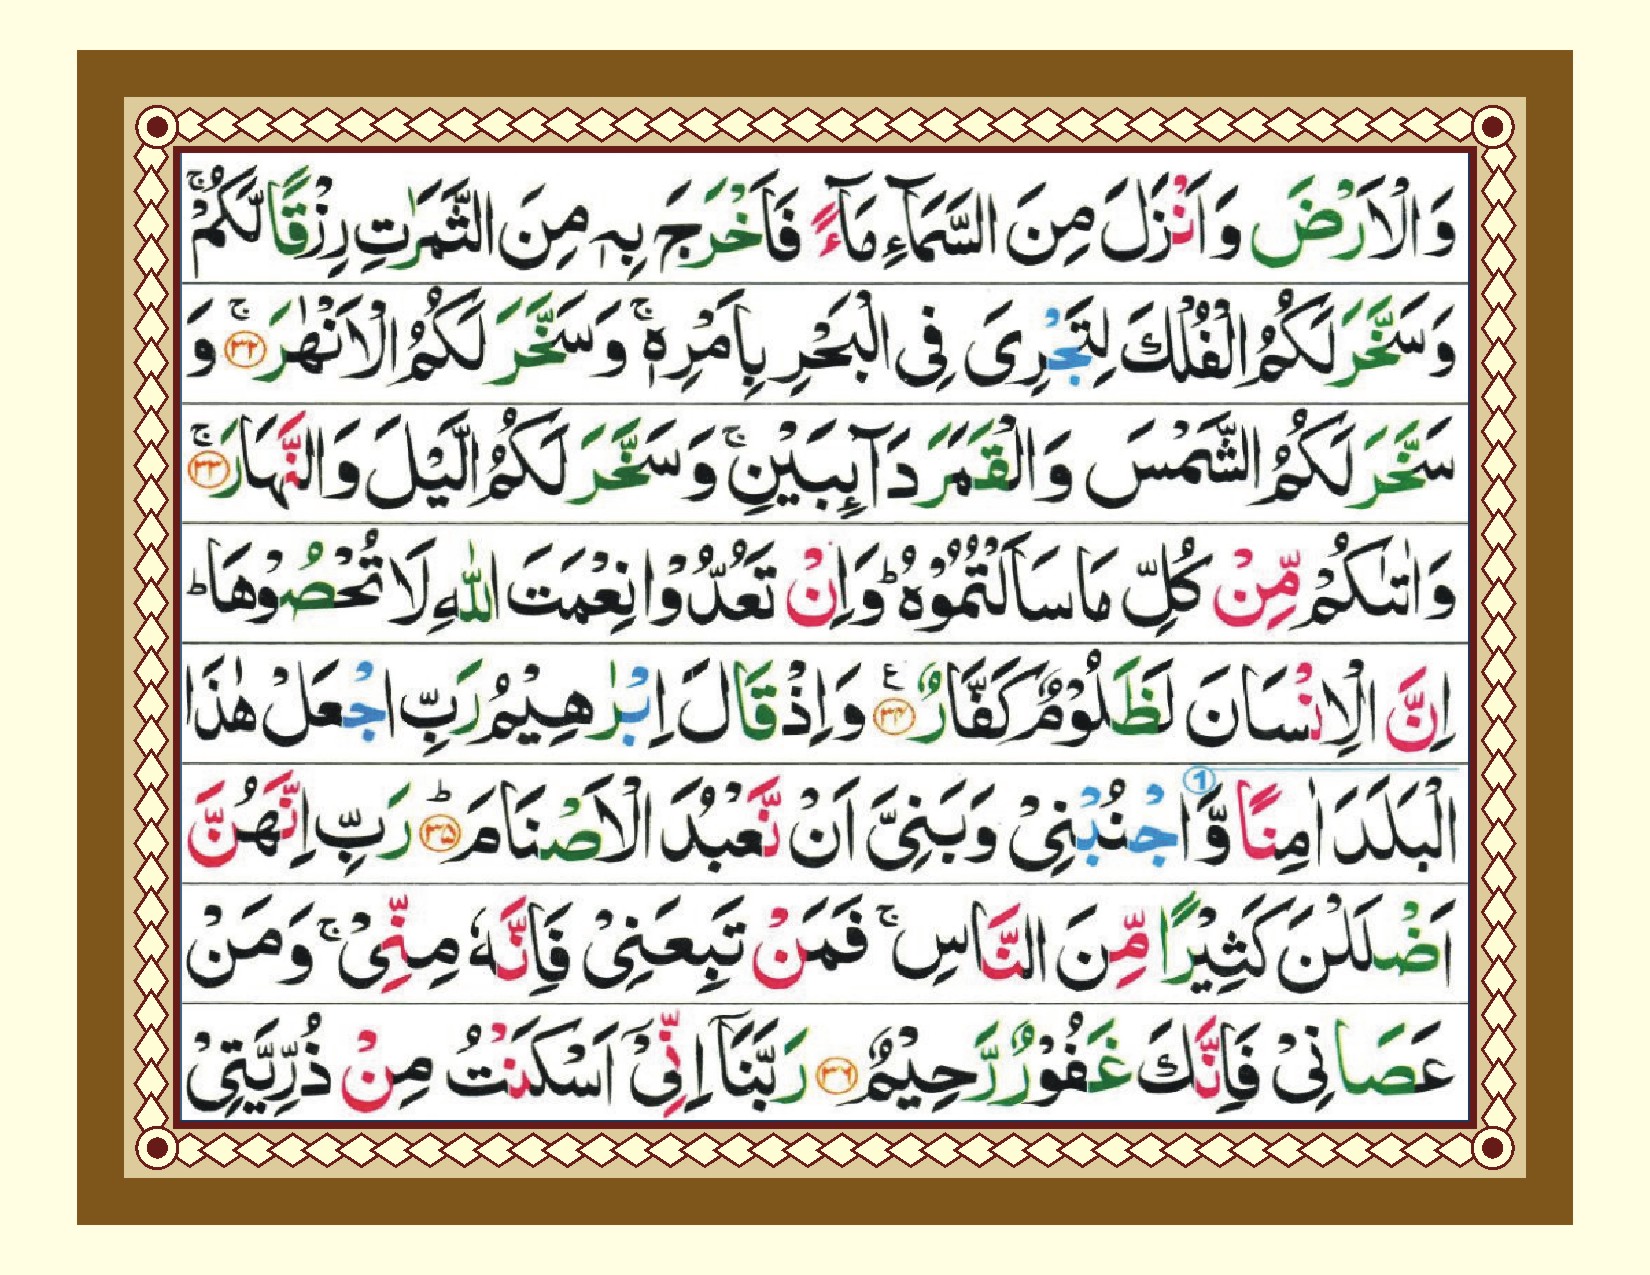 وَالْاَرْضَ وَاَنْزَلَ مِنَ السَّمَآءِ مَآءً فَاَخْرَجَ بِهٖ مِنَ الثَّمَرٰتِ رِزْقًا لَّكُمْ ۚ
وَسَخَّرَ لَكُمُ الْفُلْكَ لِتَجْرِىَ فِى الْبَحْرِ بِاَمْرِهٖ ۚ وَسَخَّرَ لَكُمُ الْاَنْهٰرَ ۚ ﴿۳۲﴾ وَ
سَخَّرَ لَكُمُ الشَّمْسَ وَالْقَمَرَ دَآئِبَيْنِ ۚ وَسَخَّرَ لَكُمُ الَّيْلَ وَالنَّهَارَ ۚ ﴿۳۳﴾
وَاٰتٰىكُمْ مِّنْ كُلِّ مَا سَاَلْتُمُوْهُ ؕ وَاِنْ تَعُدُّوْا نِعْمَتَ اللّٰهِ لَا تُحْصُوْهَا ؕ
اِنَّ الْاِنْسَانَ لَظَلُوْمٌ كَفَّارٌ ﴿۳۴﴾ ع وَاِذْ قَالَ اِبْرٰهِيْمُ رَبِّ اجْعَلْ هٰذَا
الْبَلَدَ اٰمِنًا وَّاجْنُبْنِىْ وَبَنِىَّ اَنْ نَّعْبُدَ الْاَصْنَامَ ؕ ﴿۳۵﴾ رَبِّ اِنَّهُنَّ
اَضْلَلْنَ كَثِيْرًا مِّنَ النَّاسِ ۚ فَمَنْ تَبِعَنِىْ فَاِنَّهٗ مِنِّىْ ۚ وَمَنْ
عَصَانِىْ فَاِنَّكَ غَفُوْرٌ رَّحِيْمٌ ﴿۳۶﴾ رَبَّنَاۤ اِنِّىْۤ اَسْكَنْتُ مِنْ ذُرِّيَّتِىْ